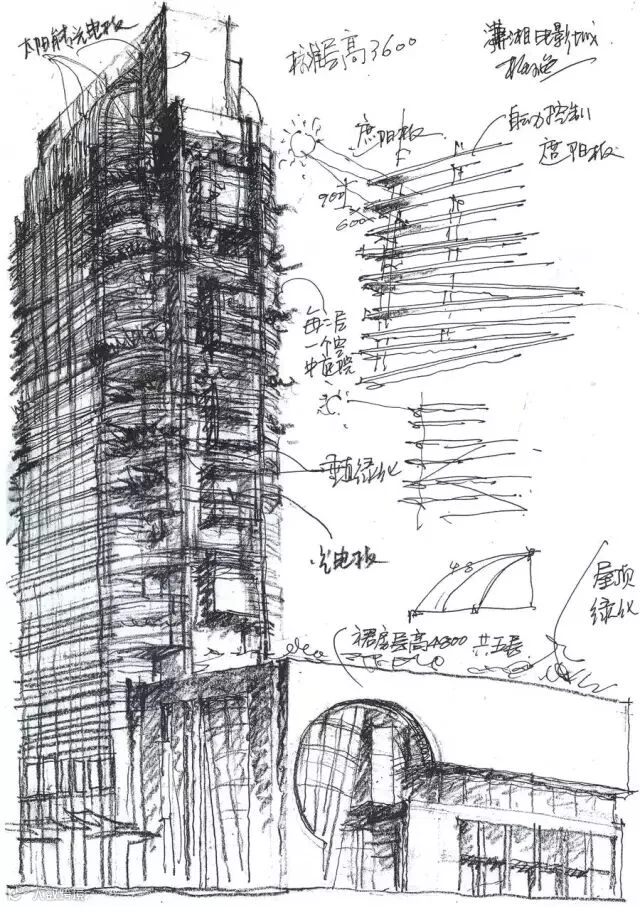 太阳能光电板
标准层高3600
潇湘电影城
遮阳板
自动控制
遮阳板
900
600
每二层
一个空
中庭院
垂直绿化
光电板
4.8
屋顶
绿化
裙房层高4800 共五层